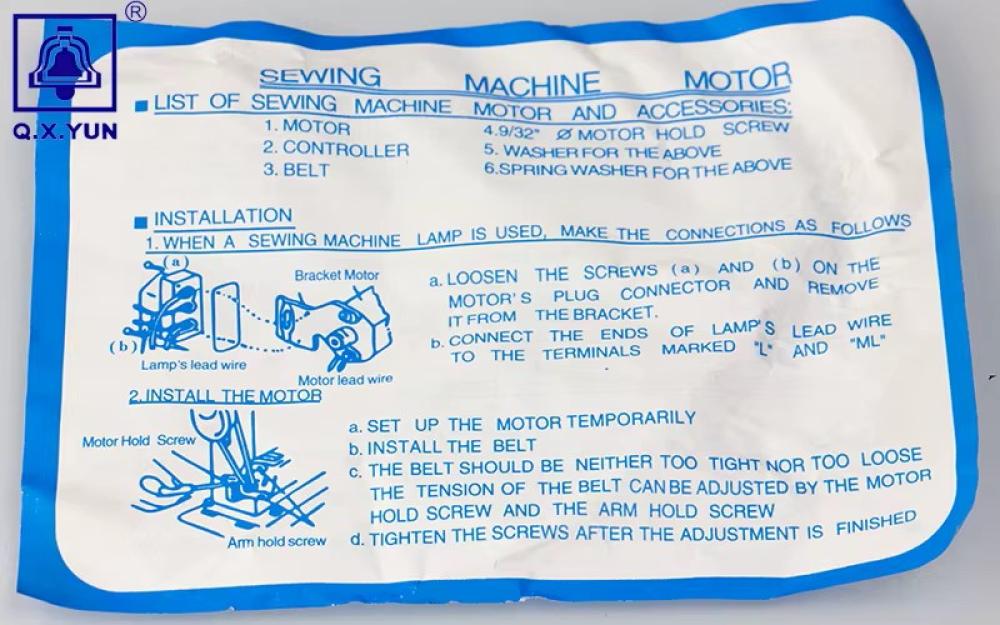 ®
Q.X.YUN
SEWING MACHINE MOTOR
■ LIST OF SEWING MACHINE MOTOR AND ACCESSORIES:
1. MOTOR 4.9/32" Ø MOTOR HOLD SCREW
2. CONTROLLER 5. WASHER FOR THE ABOVE
3. BELT 6.SPRING WASHER FOR THE ABOVE
■ INSTALLATION
1. WHEN A SEWING MACHINE LAMP IS USED, MAKE THE CONNECTIONS AS FOLLOWS
(a)
Bracket Motor
(b)
Lamp's lead wire
Motor lead wire
a. LOOSEN THE SCREWS (a) AND (b) ON THE
MOTOR'S PLUG CONNECTOR AND REMOVE
IT FROM THE BRACKET.
b. CONNECT THE ENDS OF LAMP'S LEAD WIRE
TO THE TERMINALS MARKED "L" AND "ML"
2.INSTALL THE MOTOR
Motor Hold Screw
Arm hold screw
a. SET UP THE MOTOR TEMPORARILY
b. INSTALL THE BELT
c. THE BELT SHOULD BE NEITHER TOO TIGHT NOR TOO LOOSE
THE TENSION OF THE BELT CAN BE ADJUSTED BY THE MOTOR
HOLD SCREW AND THE ARM HOLD SCREW
d. TIGHTEN THE SCREWS AFTER THE ADJUSTMENT IS FINISHED